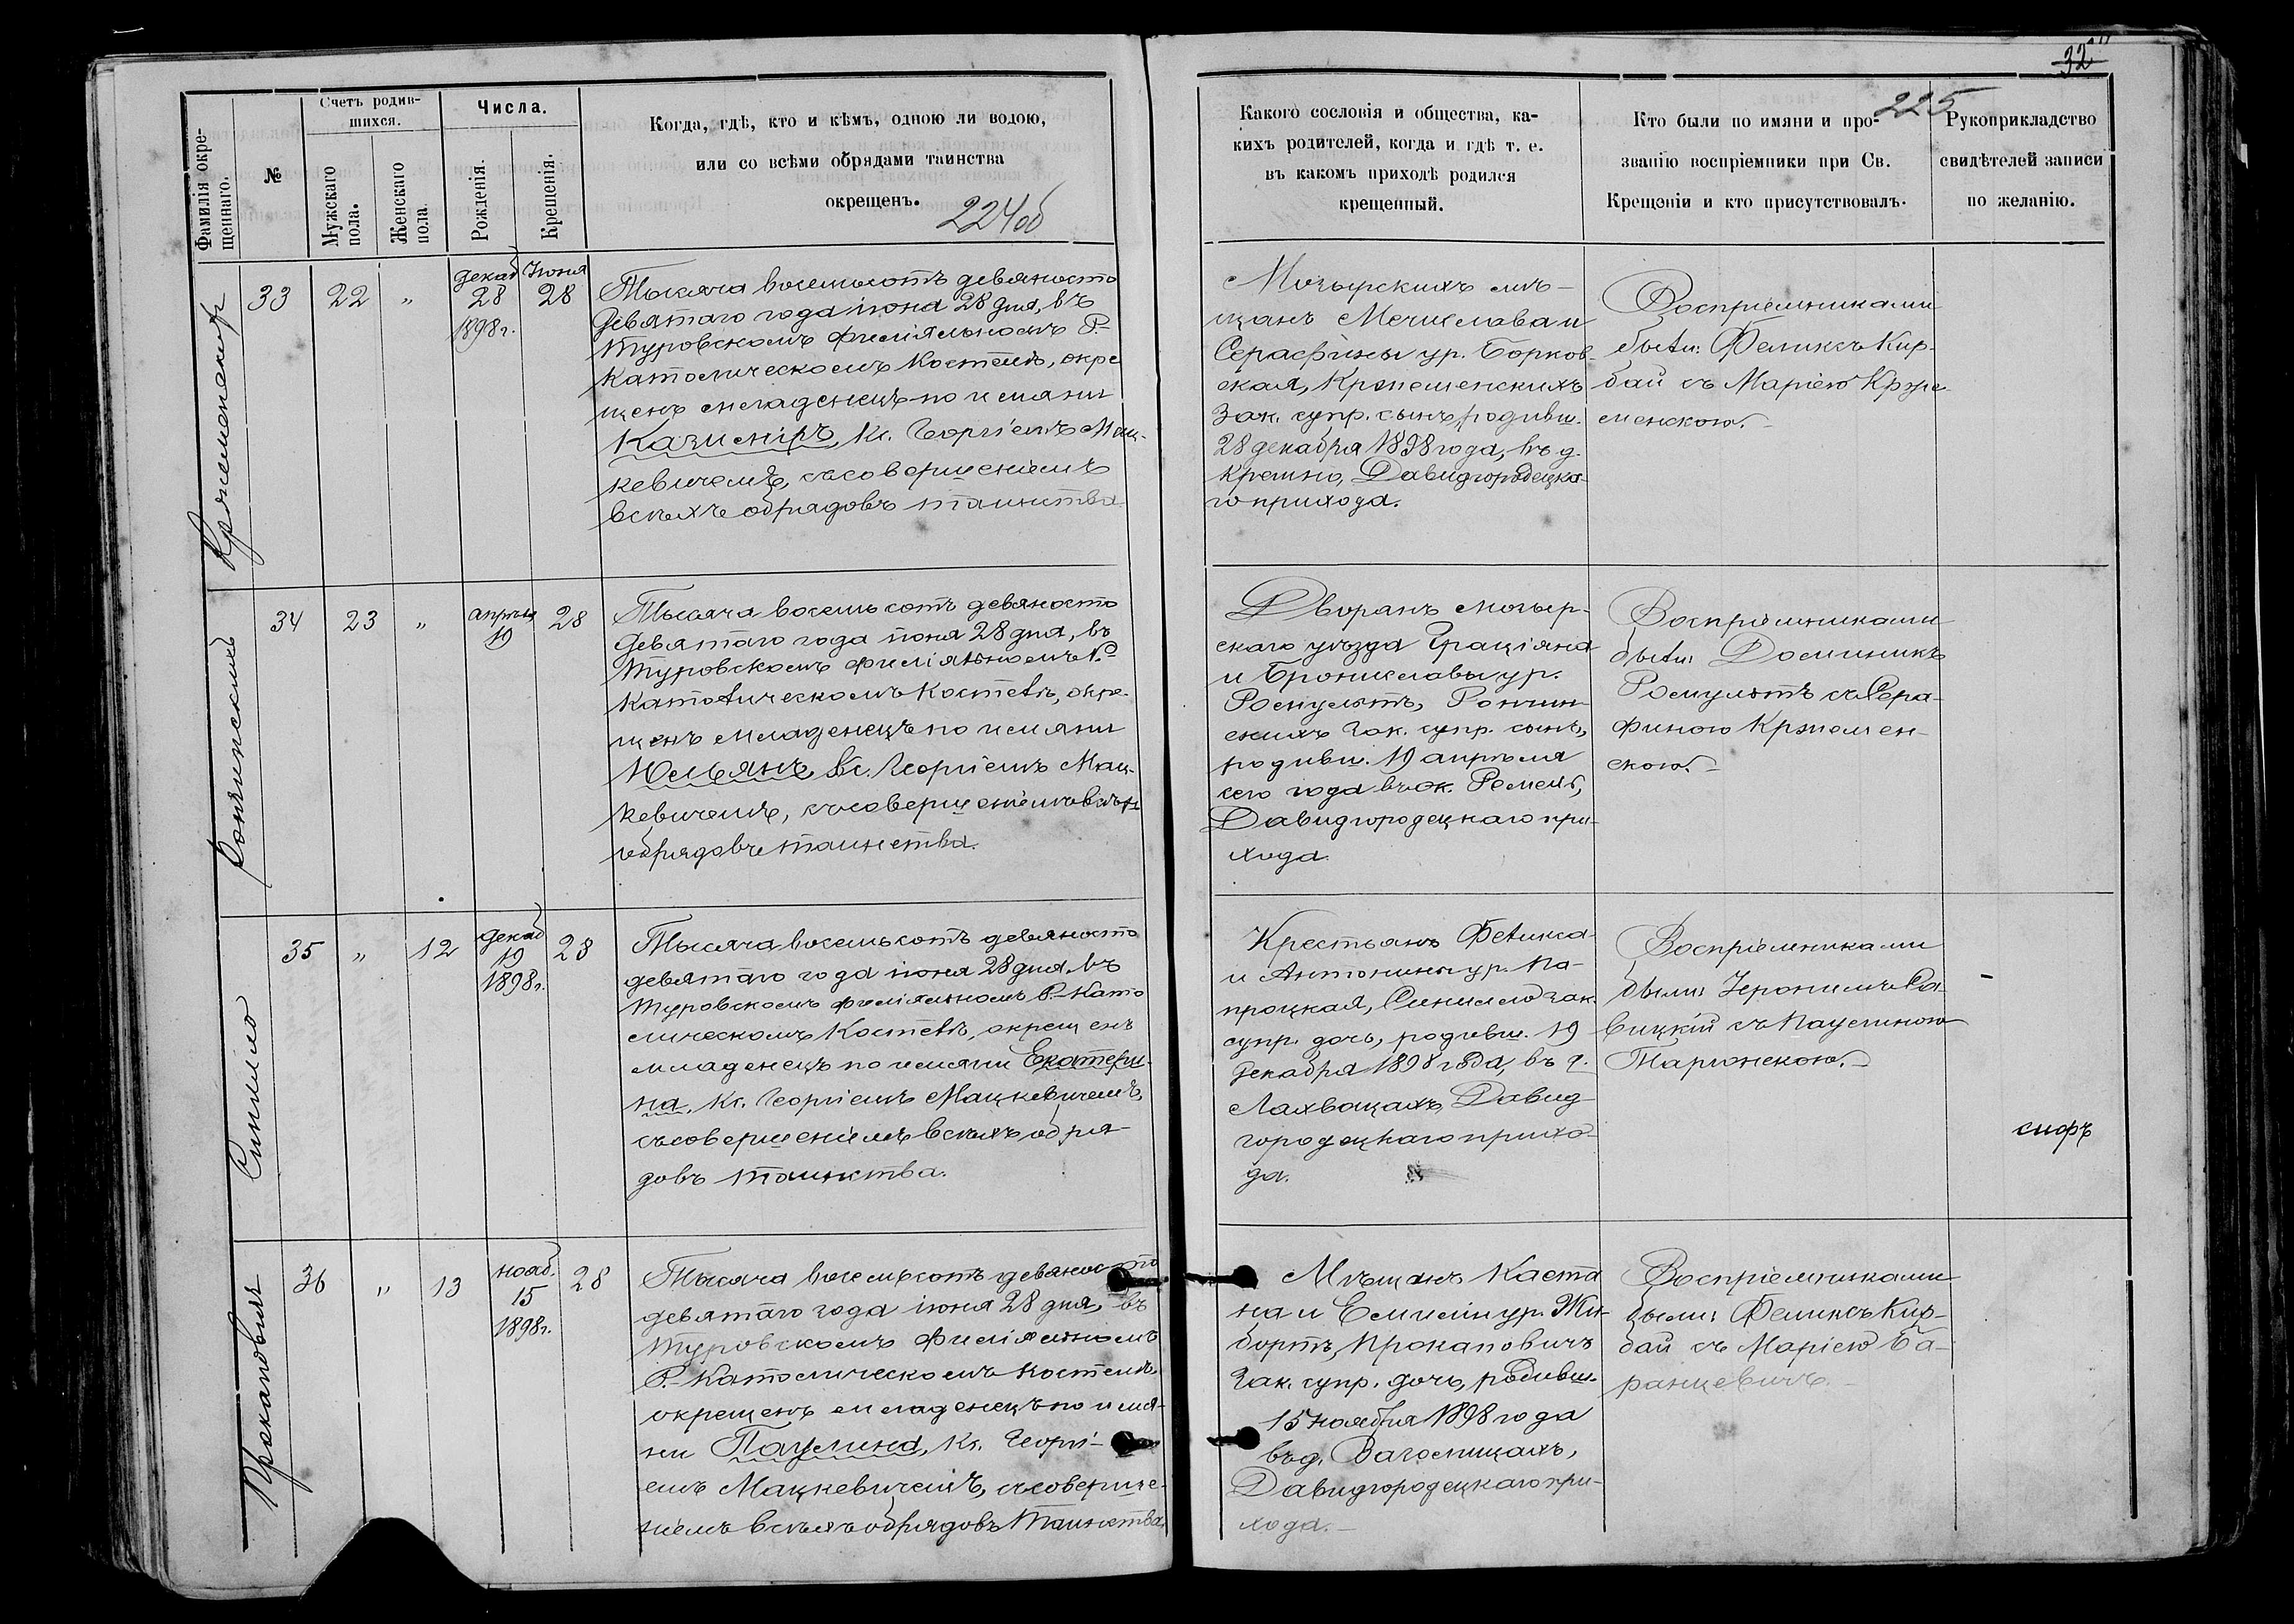 32
225
Фамилія окре-
щеннаго.
№
Счетъ родив-
шихся.
Мужскаго
пола.
Женскаго
пола
Числа.
Рожденія.
Крещенія.
Когда, гдѣ, кто и кѣмъ, одною ли водою,
или со всѣми обрядами таинства
окрещенъ.
224об
Какого сословія и общества, ка-
кихъ родителей, когда и гдѣ т. е.
въ какомъ приходѣ родился
крещенный.
Кто были по имяни и про-
званію воспріемники при Св.
Крещеніи и кто присутствовалъ.
Рукоприкладство
свидѣтелей записи
по желанію.
33
22
"
декаб
28
1898г.
Іюня
28
Тысяча восемьсотъ девяносто
девятаго года іюня 28 дня, въ
Туровскомъ филіяльномъ Р.-
Католическомъ Костелѣ, окре
щенъ младенецъ по имяни
Казиміръ, Кс. Георгіемъ Мац-
кевичемъ, съ совершеніемъ
всѣхъ обрядовъ таинства.
Мозырскихъ мѣ-
щанъ Мечислава и
Серафины ур. Борков-
ская, Кржеменскихъ
Зак. супр. сынъ, родивш.
28 декабря 1898 года, въ д.
Кремно, Давидгородецка-
го прихода.
Воспріемниками
были: Феликсъ Кир-
бай съ Маріею Крже
менскою.-
34
23
"
апрѣля
19
28
Тысяча восемьсотъ девяносто
девятаго года іюня 28 дня, въ
Туровскомъ филіяльномъ Р.-
Католическомъ Костелѣ, окре-
щенъ младенецъ по имяни
Юльянъ, Кс. Георгіемъ Мац-
кевичемъ, съ совершеніемъ всѣхъ
обрядовъ таинства.
Дворянъ мозыр-
скаго уѣзда Граціяна
и Брониславы ур.
Ромультъ, Рончин-
скихъ Зак. супр. сынъ,
родивш. 19 апрѣля
сего года въ ок. Ремель,
Давидгородецкаго при-
хода.
Воспріемниками
были: Доминикъ
Ромультъ съ Сера-
финою Кржемен-
скою.-
Синило
35
"
12
декаб
19
1898г.
28
Тысяча восемьсотъ девяносто
девятаго года іюня 28 дня, въ
Туровскомъ филіяльномъ Р.-Като
лическомъ Костелѣ, окрещенъ
младенецъ по имяни Екатери-
на, Кс. Георгіемъ Мацкевичемъ,
съ совершеніемъ всѣхъ обря-
довъ таинства.
Крестьянъ Феликса
и Антонины ур. Па-
процкая, Синило зак.
супр. дочь, родивш. 19
декабря 1898 года, въ д.
Лахвацахъ, Давид-
городецкаго прихо-
да.
Воспріемниками
были: Іеронимъ Са-
вицкій съ Паулиною
Таргонскою.-
Прокаповичъ
36
"
13
нояб.
15
1898г.
28
Тысяча восемьсотъ девяносто
девятаго года іюня 28 дня, въ
Туровскомъ филіяльномъ
Р.-Католическомъ Костелѣ,
окрещенъ младенецъ по имя-
ни Паулина, Кс. Георгі-
емъ Мацкевичемъ, съ соверше-
ніемъ всѣхъ обрядовъ таинства.
Мѣщанъ Каста
на и Емиліи ур. Жи-
бортъ, Прокаповичъ
Зак. супр. дочь, родивш.
15 ноября 1898 года
въ д. Заголицахъ,
Давидгородецкаго при-
хода.-
Воспріемниками
были: Феликсъ Кир-
бай съ Маріею Ба-
ранцевичъ.-